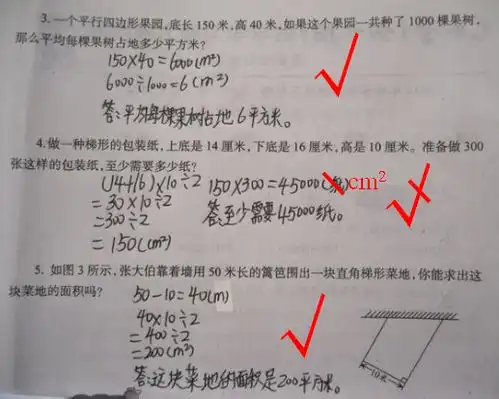 3. 一个平行四边形果园,底长 150 米,高 40 米,如果这个果园一共种了 1000 棵果树,
那么平均每棵果树占地多少平方米?
150×40=6000(m²)
6000÷1000=6(m²)
答:平均每棵果树占地6平方米。
4. 做一种梯形的包装纸,上底是 14 厘米,下底是 16 厘米,高是 10 厘米。准备做 300
张这样的包装纸,至少需要多少纸?
(14+16)×10÷2
=30×10÷2
=300÷2
=150(cm²)
150×300=45000(张) cm²
答:至少需要45000纸。
5. 如图 3 所示,张大伯靠着墙用 50 米长的篱笆围出一块直角梯形菜地,你能求出这
块菜地的面积吗?
50-10=40(m)
40×10÷2
=400÷2
=200(m²)
答:这块菜地的面积是200平方米。
10米